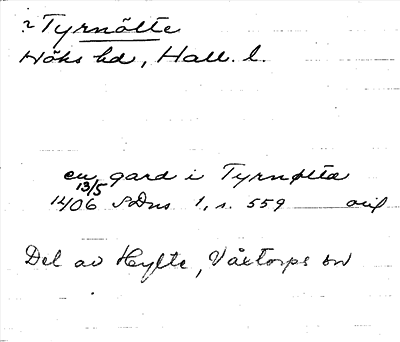 ? Tyrnölte
Höks hd, Hall. l.
en gard i Tyrnølta
13/5
1406 SDns 1, s. 559 — avskr
Del av Hylte, Våxtorps sn